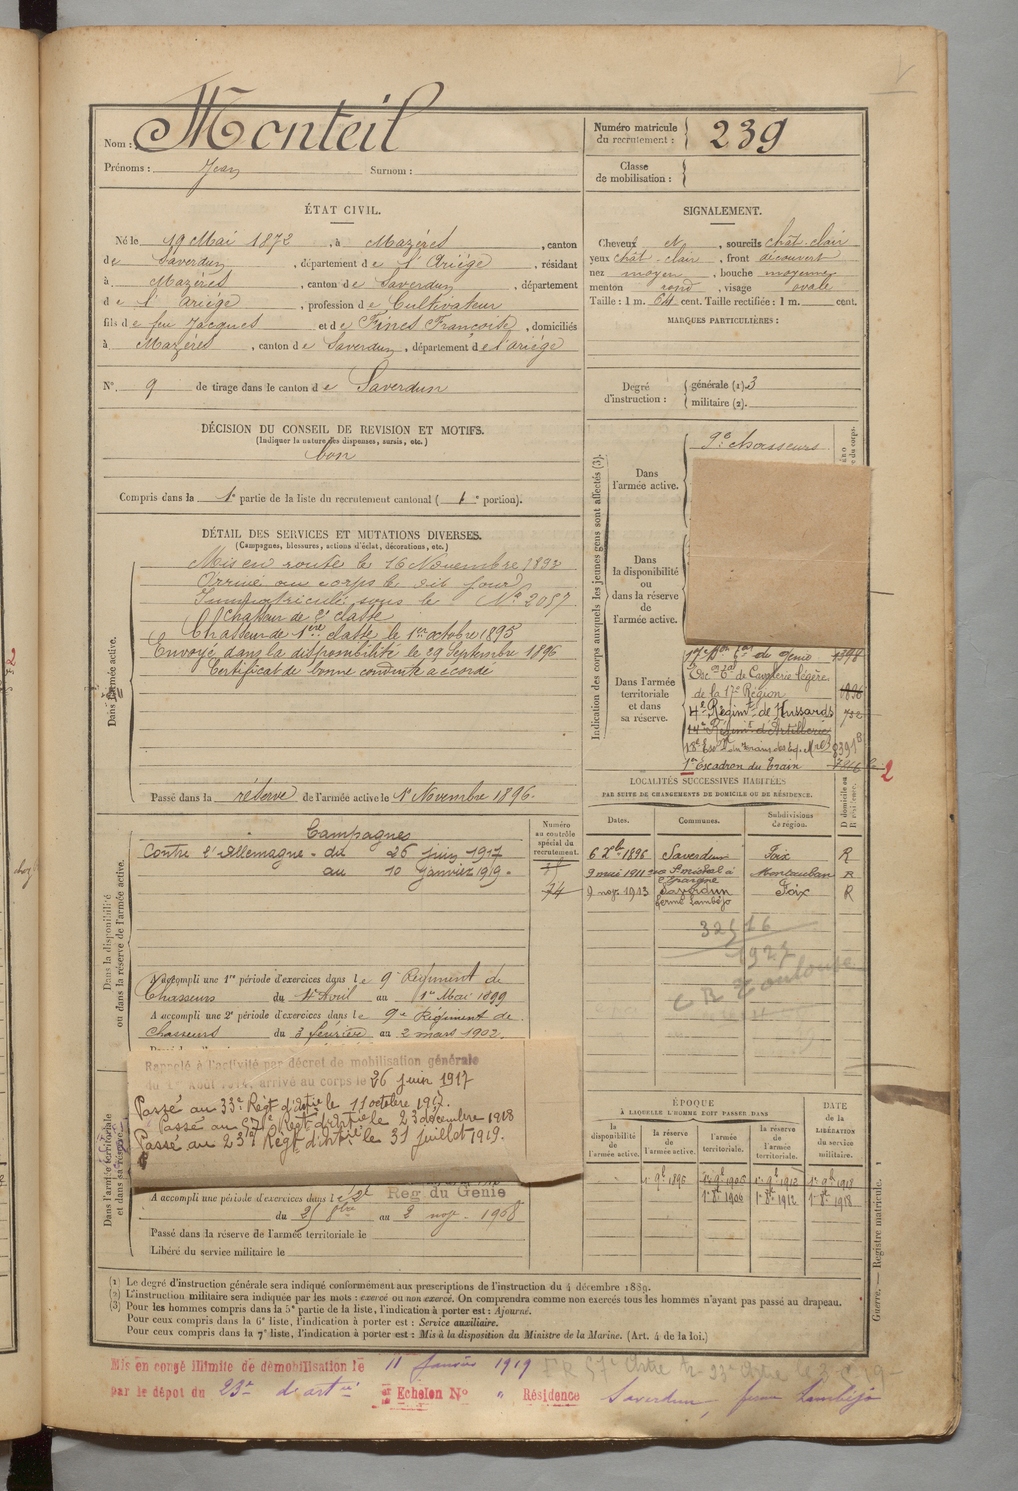 Nom : Monteil
Prénoms : Jean Surnom :
Numéro matricule du recrutement : 239
Classe de mobilisation :
ÉTAT CIVIL.
Né le 19 Mai 1872, à Mazères, canton
de Saverdun, département de l'Ariège, résidant
à Mazères, canton de Saverdun, département
de l'Ariège, profession de Cultivateur
fils de feu Jacques et de Finès Françoise, domiciliés
à Mazères, canton de Saverdun, département de l'ariège
N°. 9 de tirage dans le canton de Saverdun
SIGNALEMENT.
Cheveux et, sourcils chât. clair
yeux chât. clair, front découvert
nez moyen, bouche moyenne
menton rond, visage ovale
Taille : 1 m. 64 cent. Taille rectifiée : 1 m. cent.
MARQUES PARTICULIÈRES :
Degré d'instruction : générale (1). 3
militaire (2).
DÉCISION DU CONSEIL DE REVISION ET MOTIFS.
(Indiquer la nature des dispenses, sursis, etc.)
bon
Compris dans la 1e partie de la liste du recrutement cantonal (1e portion).
DÉTAIL DES SERVICES ET MUTATIONS DIVERSES.
(Campagnes, blessures, actions d'éclat, décorations, etc.)
Dans l'armée active.
Mis en route le 16 Novembre 1893
Arrivé au corps le dit jour
Immatriculé sous le N° 2057
Chasseur de 2e classe
Chasseur de 1ère classe le 1er octobre 1895
Envoyé dans la disponibilité le 29 Septembre 1896
Certificat de bonne conduite accordé
Passé dans la réserve de l'armée active le 1er Novembre 1896.
Indication des corps auxquels les jeunes gens sont affectés (3).
Dans l'armée active.
9e chasseurs
Dans la disponibilité ou dans la réserve de l'armée active.
Dans l'armée territoriale et dans sa réserve.
17e Bon Tal du Génie 1398
Esc. on Tal de Cavalerie légère
de la 17e Région
4e Régimt de Hussards 752
14e Régimt d'Artillerie
18e Eson du Trains des Eq. Mres
1er Escadron du Train
2
LOCALITÉS SUCCESSIVES HABITÉES
PAR SUITE DE CHANGEMENTS DE DOMICILE OU DE RÉSIDENCE.
Dates. Communes. Subdivisions de région. D domicile ou R résidence.
6 Xbre 1896 Saverdun Foix R
9 mai 1911 Montauban R
9 nov. 1913 Saverdun ferme Lambéjo Foix R
32516
1927
CR Toulouse
Numéro au contrôle spécial du recrutement.
74
Dans la disponibilité ou dans la réserve de l'armée active.
Campagnes
Contre l'Allemagne - du 26 juin 1917
au 10 Janvier 1919 -
A accompli une 1re période d'exercices dans le 9e Régiment de
Chasseurs du 4 Avril au 1er Mai 1899
A accompli une 2e période d'exercices dans le 9e Régiment de
chasseurs du 3 février au 2 mars 1902.
Rappelé à l'activité par décret de mobilisation générale
du 1er Août 1914. arrivé au corps le 26 juin 1917
Passé au 33e Régt d'artie le 11 octobre 1917.
Passé au 57e Régt d'Artie le 23 décembre 1918
Passé au 23e Régt d'artie le 31 juillet 1919.
Dans l'armée territoriale et dans sa réserve.
A accompli une période d'exercices dans le 2e Reg. du Génie
du 25 8bre au 2 nov. 1908
Passé dans la réserve de l'armée territoriale le
Libéré du service militaire le
ÉPOQUE À LAQUELLE L'HOMME DOIT PASSER DANS
la disponibilité de l'armée active. la réserve de l'armée active. l'armée territoriale. la réserve de l'armée territoriale.
DATE de la LIBÉRATION du service militaire.
1er 9bre 1896 1er 9bre 1906 1er 9bre 1912 1er 9bre 1918
1er 8bre 1906 1er 8bre 1912 1er 8bre 1918
Guerre. — Registre matricule. 1
(1) Le degré d'instruction générale sera indiqué conformément aux prescriptions de l'instruction du 4 décembre 1889.
(2) L'instruction militaire sera indiquée par les mots : exercé ou non exercé. On comprendra comme non exercés tous les hommes n'ayant pas passé au drapeau.
(3) Pour les hommes compris dans la 5e partie de la liste, l'indication à porter est : Ajourné.
Pour ceux compris dans la 6e liste, l'indication à porter est : Service auxiliaire.
Pour ceux compris dans la 7e liste, l'indication à porter est : Mis à la disposition du Ministre de la Marine. (Art. 4 de la loi.)
Mis en congé illimité de démobilisation le 11 Janvier 1919
par le dépôt du 23e d'artie Echelon N° " Résidence Saverdun, ferme Lambéjo